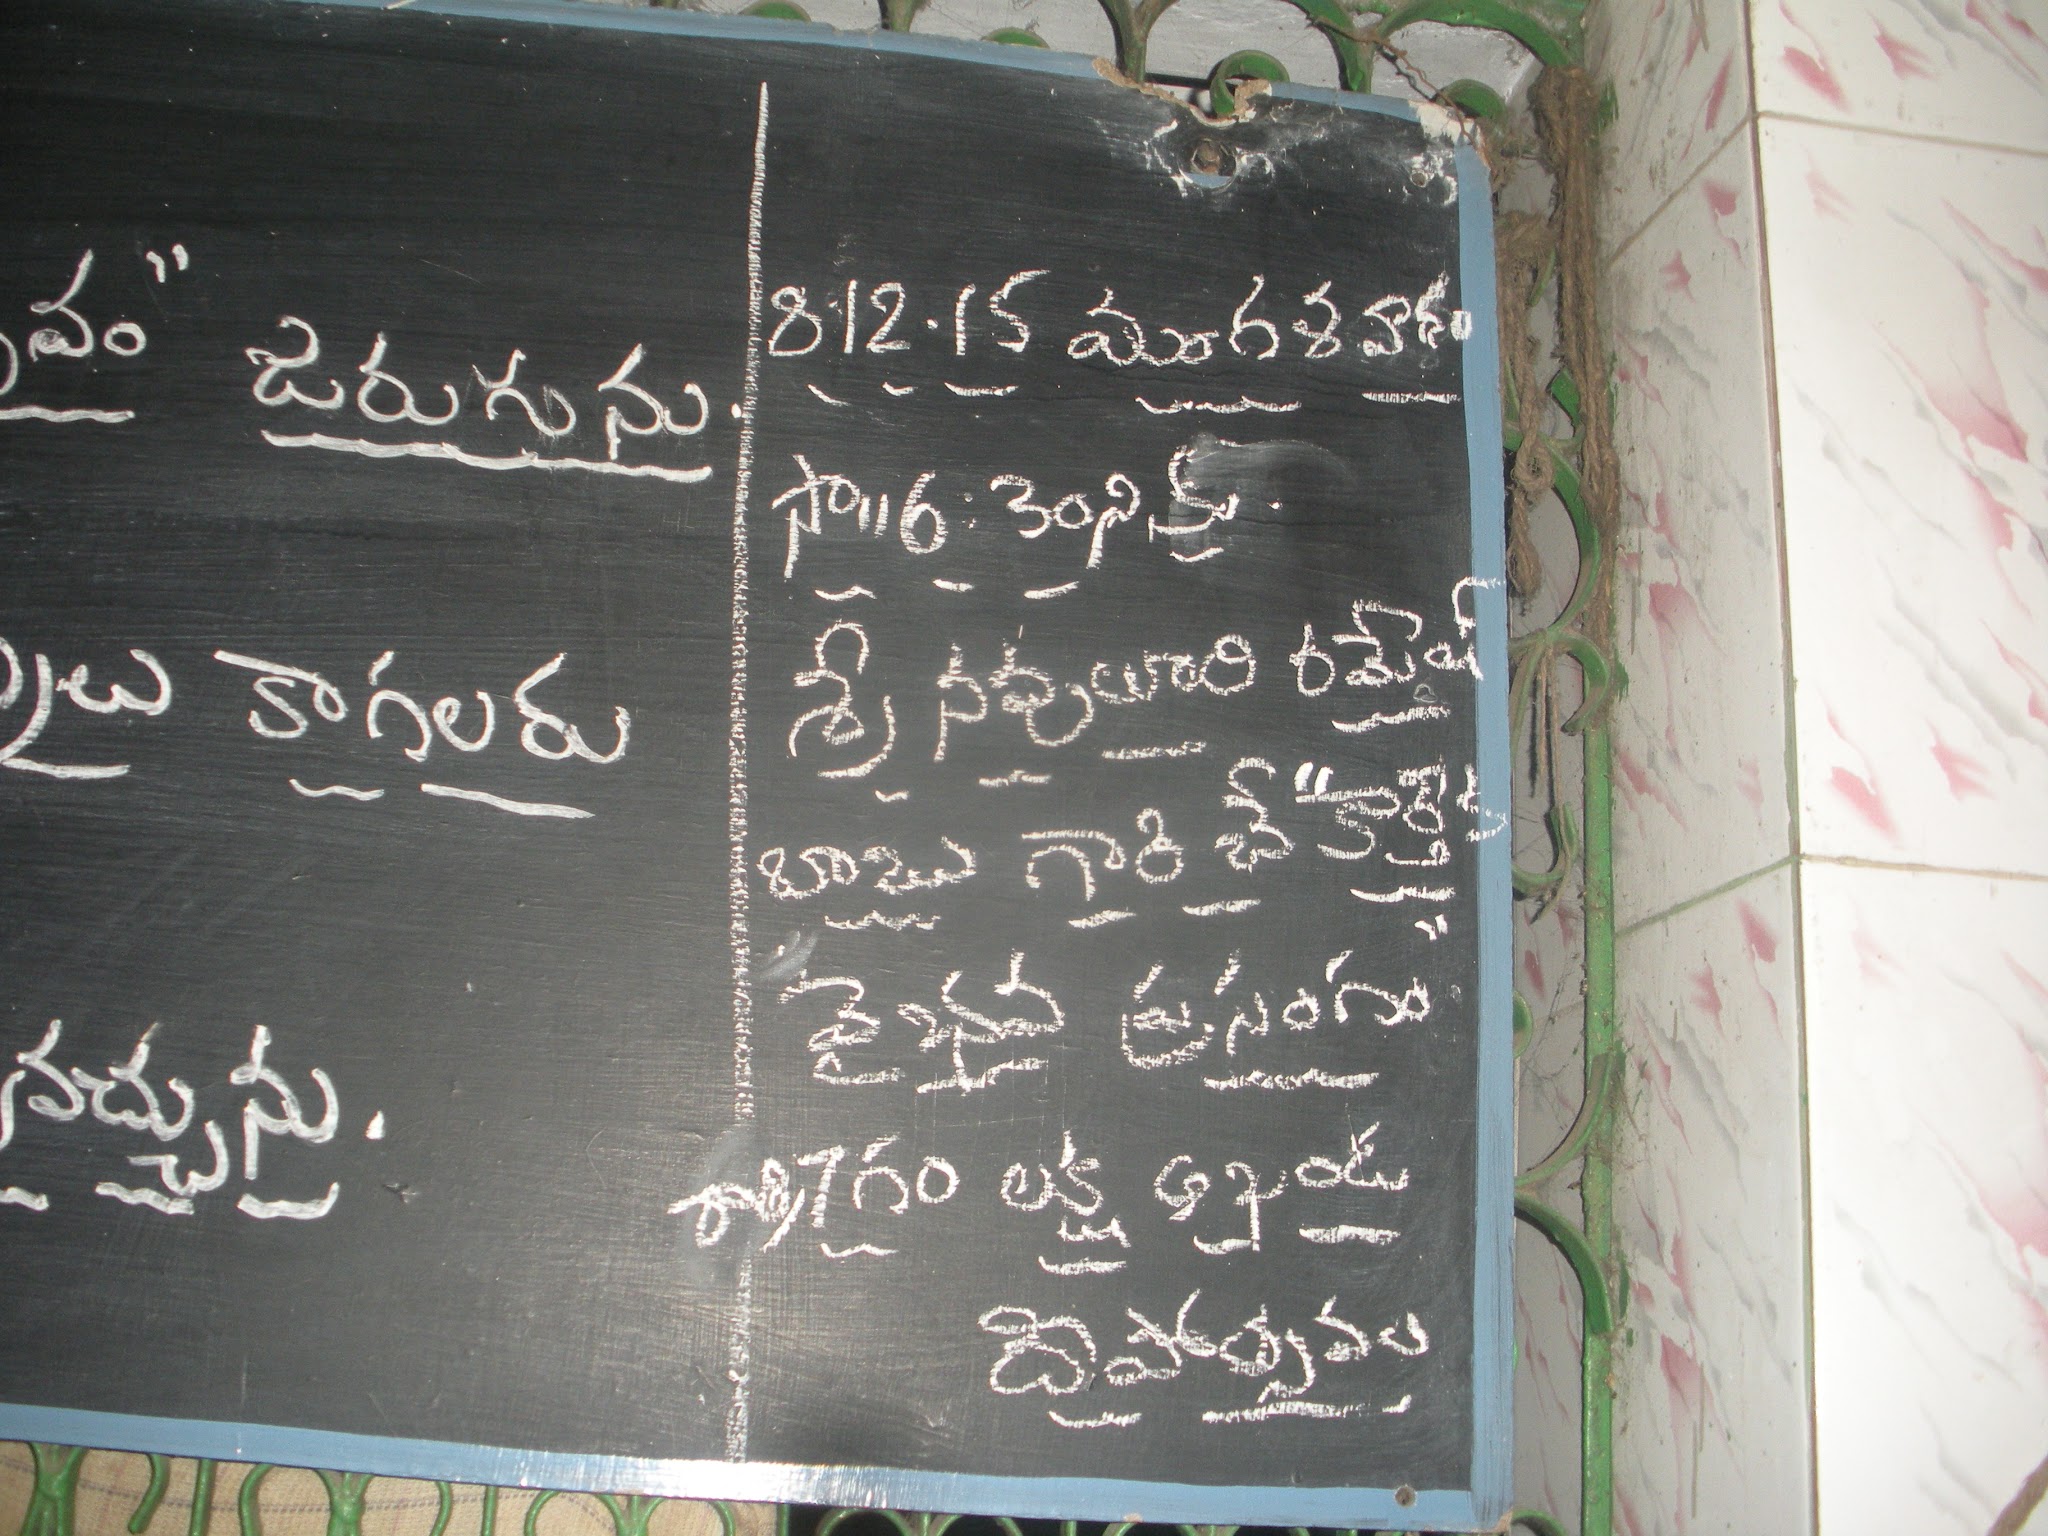 వం" జరుగును.
లు కాగలరు
వచ్చును.
8.12.15 మంగళవారం
సా॥ 6.30ని నుం.
శ్రీ నవులూరి రమేష్
బాబు గారి చే "కార్తీక
వైభవ ప్రసంగం"
రాత్రి 7గం లక్ష అఖండ
దీపోత్సవం